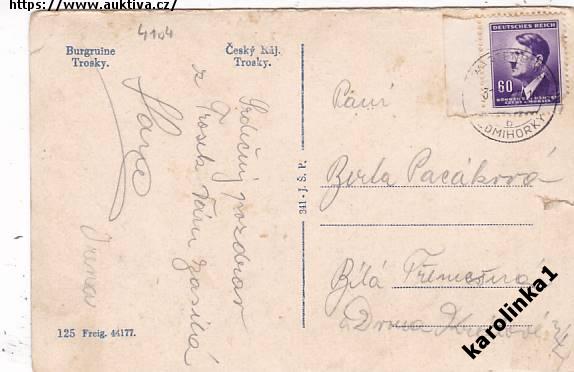 https://www.auktiva.cz/
4104
Burgruine
Trosky.
Český Ráj.
Trosky.
Srdečný pozdrav
z Trosek Vám zasílá
125 Freig. 44177.
341 - J. Š. P.
DEUTSCHES REICH
60
BÖHMEN UND MÄHREN
ČECHY A MORAVA
Paní
Berta Pacáková
Bílá Třemešná
u Dvora Králové
karolinka1